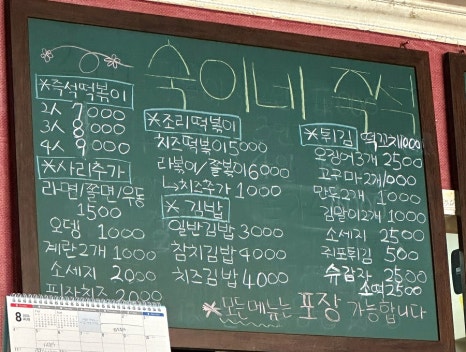 숙이네 즉석
*즉석떡볶이
2人 7000
3人 8000
4人 9000
*사리추가
라면/쫄면/우동
1500
오뎅 1000
계란2개 1000
소세지 2000
피자치즈 2000
*조리떡볶이
치즈떡볶이 5000
라볶이/쫄볶이 6000
↳치즈추가 1000
*김밥
일반김밥 3000
참치김밥 4000
치즈김밥 4000
*튀김
떡꼬치 1000
오징어3개 2500
고구마2개 1000
만두2개 1000
김말이2개 1000
소세지 2500
쥐포튀김 500
슈감자 2500
소떡 2500
*모든메뉴는 포장 가능합니다
8